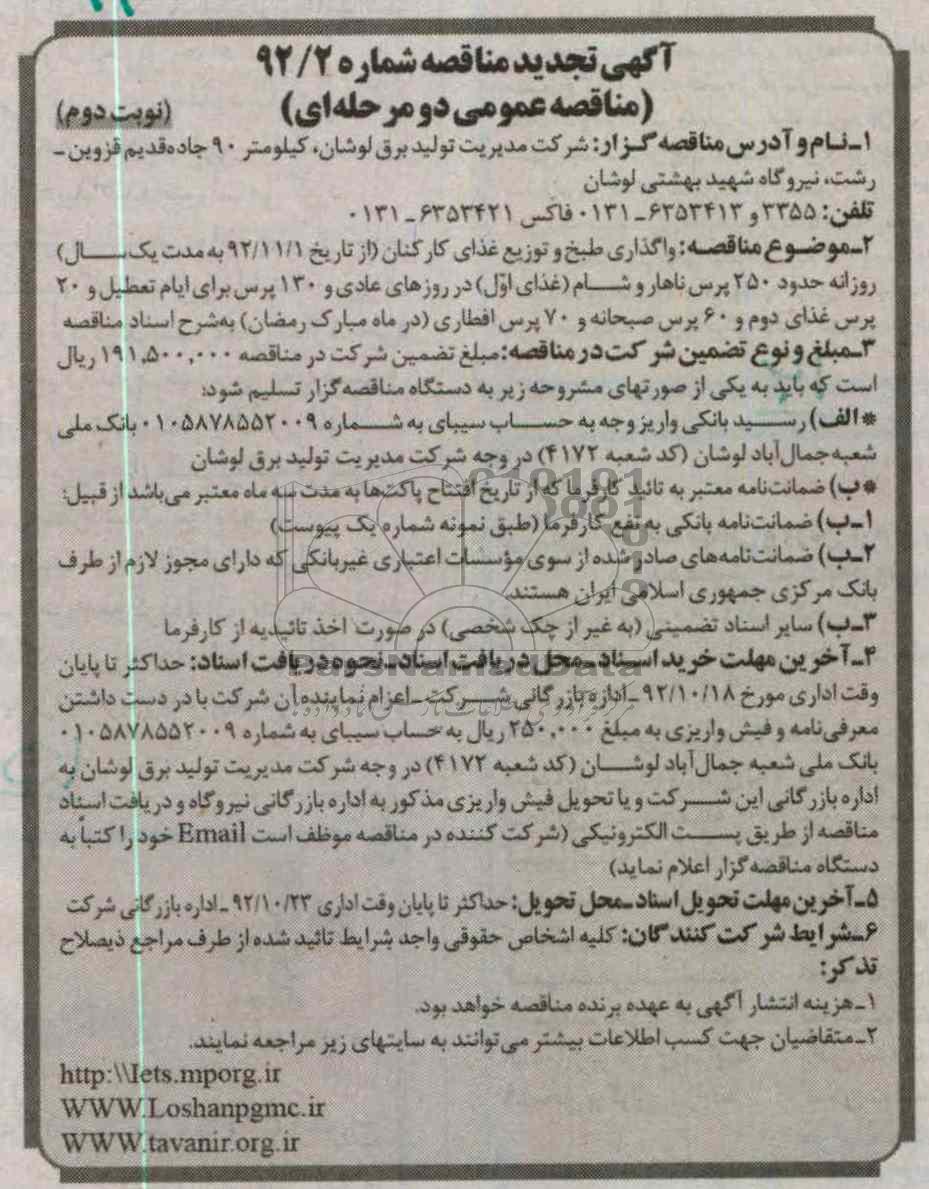 آگهی تجدید مناقصه شماره ۹۲/۲
(مناقصه عمومی دو مرحله‌ای)
(نوبت دوم)
۱ـ نام و آدرس مناقصه گزار: شرکت مدیریت تولید برق لوشان، کیلومتر ۹۰ جاده قدیم قزوین ـ
رشت، نیروگاه شهید بهشتی لوشان
تلفن: ۳۳۵۵ و ۶۳۵۳۴۱۳ ـ ۰۱۳۱ فاکس ۶۳۵۳۴۲۱ ـ ۰۱۳۱
۲ـ موضوع مناقصه: واگذاری طبخ و توزیع غذای کارکنان (از تاریخ ۹۲/۱۱/۱ به مدت یک سال)
روزانه حدود ۲۵۰ پرس ناهار و شام (غذای اوّل) در روزهای عادی و ۱۳۰ پرس برای ایام تعطیل و ۲۰
پرس غذای دوم و ۶۰ پرس صبحانه و ۷۰ پرس افطاری (در ماه مبارک رمضان) به‌شرح اسناد مناقصه
۳ـ مبلغ و نوع تضمین شرکت در مناقصه: مبلغ تضمین شرکت در مناقصه ۱۹۱,۵۰۰,۰۰۰ ریال
است که باید به یکی از صورتهای مشروحه زیر به دستگاه مناقصه‌گزار تسلیم شود:
* الف) رسید بانکی واریز وجه به حساب سیبای به شماره ۰۱۰۵۸۷۸۵۵۲۰۰۹ بانک ملی
شعبه جمال‌آباد لوشان (کد شعبه ۴۱۷۲) در وجه شرکت مدیریت تولید برق لوشان
* ب) ضمانت‌نامه معتبر به تائید کارفرما که از تاریخ افتتاح پاکت‌ها به مدت سه ماه معتبر می‌باشد از قبیل:
۱ـ ب) ضمانت‌نامه بانکی به نفع کارفرما (طبق نمونه شماره یک پیوست)
۲ـ ب) ضمانت‌نامه‌های صادر شده از سوی مؤسسات اعتباری غیربانکی که دارای مجوز لازم از طرف
بانک مرکزی جمهوری اسلامی ایران هستند.
۳ـ ب) سایر اسناد تضمینی (به غیر از چک شخصی) در صورت اخذ تائیدیه از کارفرما
۴ـ آخرین مهلت خرید اسناد ـ محل دریافت اسناد ـ نحوه دریافت اسناد: حداکثر تا پایان
وقت اداری مورخ ۹۲/۱۰/۱۸ ـ اداره بازرگانی شرکت ـ اعزام نماینده آن شرکت با در دست داشتن
معرفی‌نامه و فیش واریزی به مبلغ ۲۵۰,۰۰۰ ریال به حساب سیبای به شماره ۰۱۰۵۸۷۸۵۵۲۰۰۹
بانک ملی شعبه جمال‌آباد لوشان (کد شعبه ۴۱۷۲) در وجه شرکت مدیریت تولید برق لوشان به
اداره بازرگانی این شرکت و یا تحویل فیش واریزی مذکور به اداره بازرگانی نیروگاه و دریافت اسناد
مناقصه از طریق پست الکترونیکی (شرکت کننده در مناقصه موظف است Email خود را کتباً به
دستگاه مناقصه‌گزار اعلام نماید)
۵ـ آخرین مهلت تحویل اسناد ـ محل تحویل: حداکثر تا پایان وقت اداری ۹۲/۱۰/۲۳ ـ اداره بازرگانی شرکت
۶ـ شرایط شرکت کنندگان: کلیه اشخاص حقوقی واجد شرایط تائید شده از طرف مراجع ذیصلاح
تذکر:
۱ـ هزینه انتشار آگهی به عهده برنده مناقصه خواهد بود.
۲ـ متقاضیان جهت کسب اطلاعات بیشتر می‌توانند به سایتهای زیر مراجعه نمایند.
http:\\Iets.mporg.ir
WWW.Loshanpgmc.ir
WWW.tavanir.org.ir